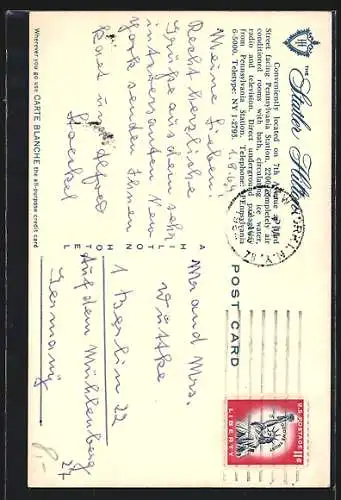 THE
Statler Hilton
Conveniently located on 7th Avenue at 33rd
Street facing Pennsylvania Station, 2200 completely air
conditioned rooms with bath, circulating ice water,
radio and television. Direct underground passageway
from Pennsylvania Station. Telephone: PEnnsylvania
6-5000. Teletype: NY 1-3793.
1.8.64
Meine Lieben!
Recht herzliche
Grüße aus dem sehr
interessanten New
York senden Ihnen
Käthe und Alfred
Wherever you go use CARTE BLANCHE the all-purpose credit card
A HILTON HOTEL
POST CARD
N.Y.
U.S. POSTAGE
11¢
LIBERTY
Mr and Mrs.
Wuttke
1 Berlin 22
Auf dem Mühlenberg
24
Germany